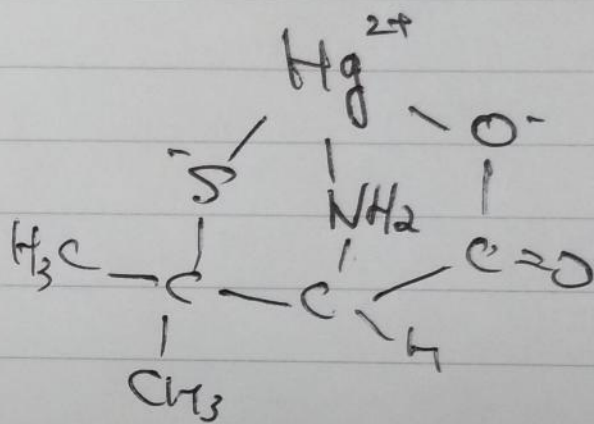 Hg2+
-S O-
NH2
H3C C C C=O
H
CH3